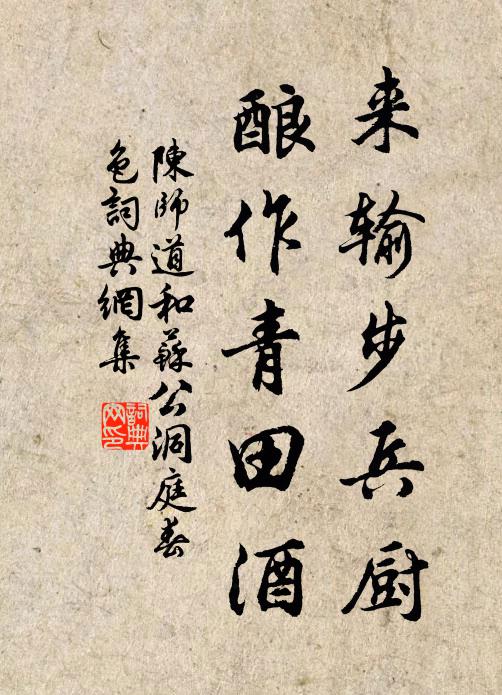 来输步兵厨
酿作青田酒
陳師道和蘇公洞庭春
色詞典網集
詞典網印